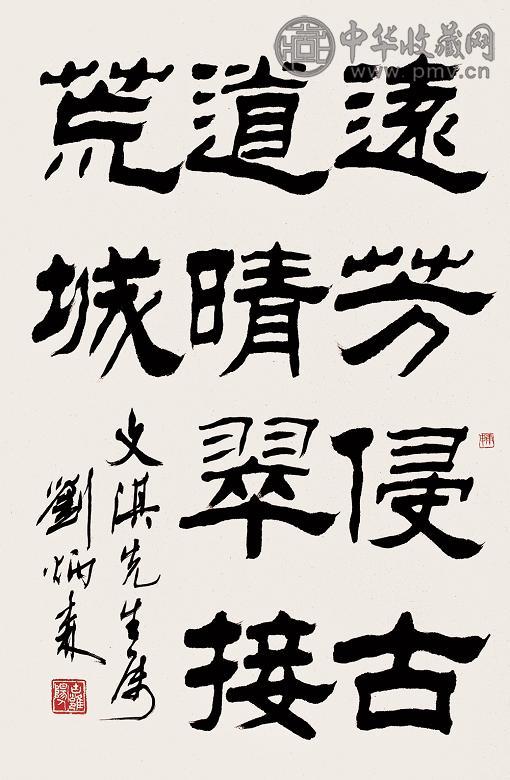 中华收藏网
www.pmv.cn
遠芳侵古
道晴翠接
荒城
文淇先生属
劉炳森